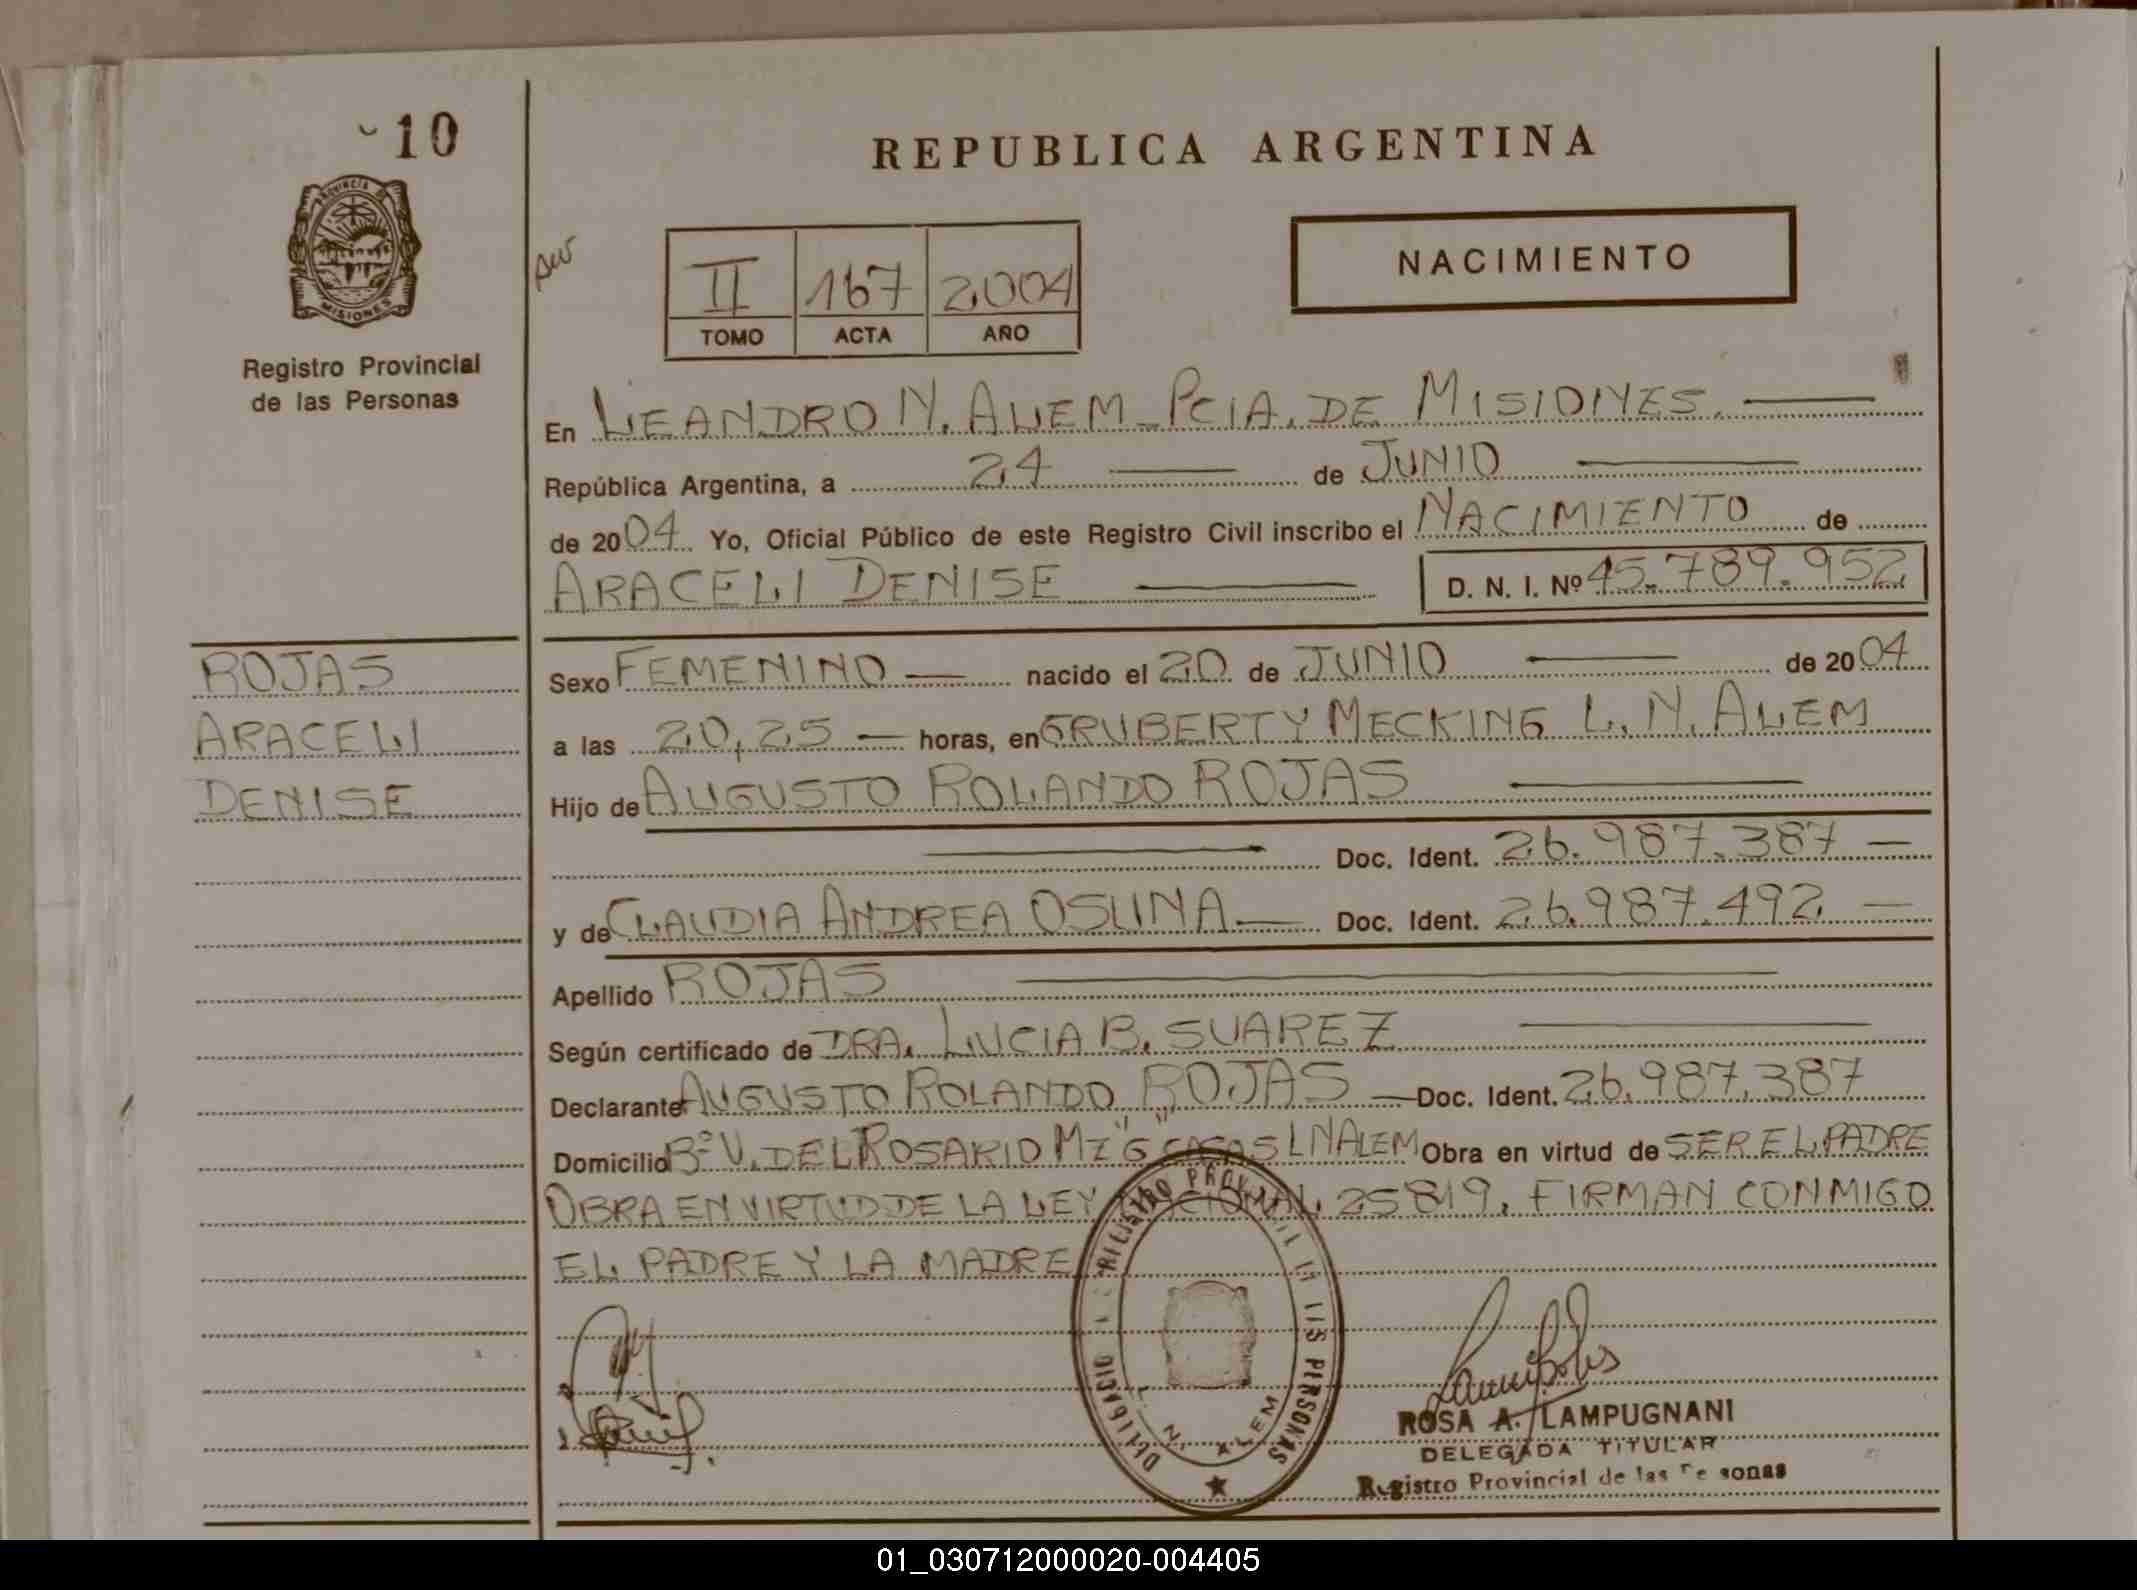 10
REPUBLICA ARGENTINA
PROVINCIA DE
MISIONES
Registro Provincial
de las Personas
II 167 2004
TOMO ACTA AÑO
NACIMIENTO
En LEANDRO N. ALEM - PCIA. DE MISIONES.
República Argentina, a 24 de JUNIO
de 2004 Yo, Oficial Público de este Registro Civil inscribo el NACIMIENTO de
ARACELI DENISE D. N. I. Nº 45.789.952
ROJAS
ARACELI
DENISE
Sexo FEMENINO nacido el 20 de JUNIO de 2004
a las 20,25 horas, en GRUBERT Y MECKING L. N. ALEM
Hijo de AUGUSTO ROLANDO ROJAS
Doc. Ident. 26.987.387
y de CLAUDIA ANDREA OSUNA Doc. Ident. 26.987.492
Apellido ROJAS
Según certificado de DRA. LUCIA B. SUAREZ
Declarante AUGUSTO ROLANDO ROJAS Doc. Ident. 26.987.387
Domicilio Bº V. DEL ROSARIO MZ "G" CASA 5 L N ALEM Obra en virtud de SER EL PADRE
OBRA EN VIRTUD DE LA LEY NACIONAL 25819. FIRMAN CONMIGO
EL PADRE Y LA MADRE
REGISTRO PROVINCIAL DE LAS PERSONAS
DELEGACIO
L. N. ALEM
ROSA A. LAMPUGNANI
DELEGADA TITULAR
Registro Provincial de las Personas
01_030712000020-004405